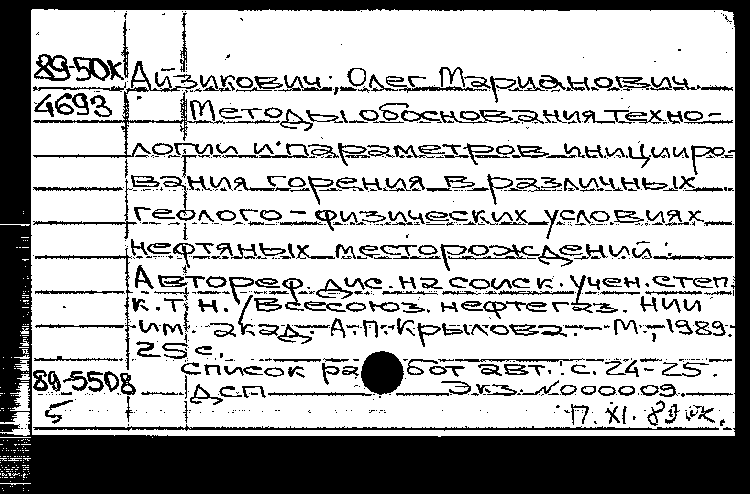 89-50к Айзикович, Олег Марианович.
4693 Методы обоснования техно-
логии и параметров иницииро-
вания горения в различных
геолого-физических условиях
нефтяных месторождений:
Автореф. дис. на соиск. учен. степ.
к.т.н. /Всесоюз. нефтегаз. НИИ
им. акад. А.П. Крылова. - М., 1989.
25 с.
Список работ авт.: с. 24-25.
89-5508 ДСП Экз. N000009.
5 П. XI. 89